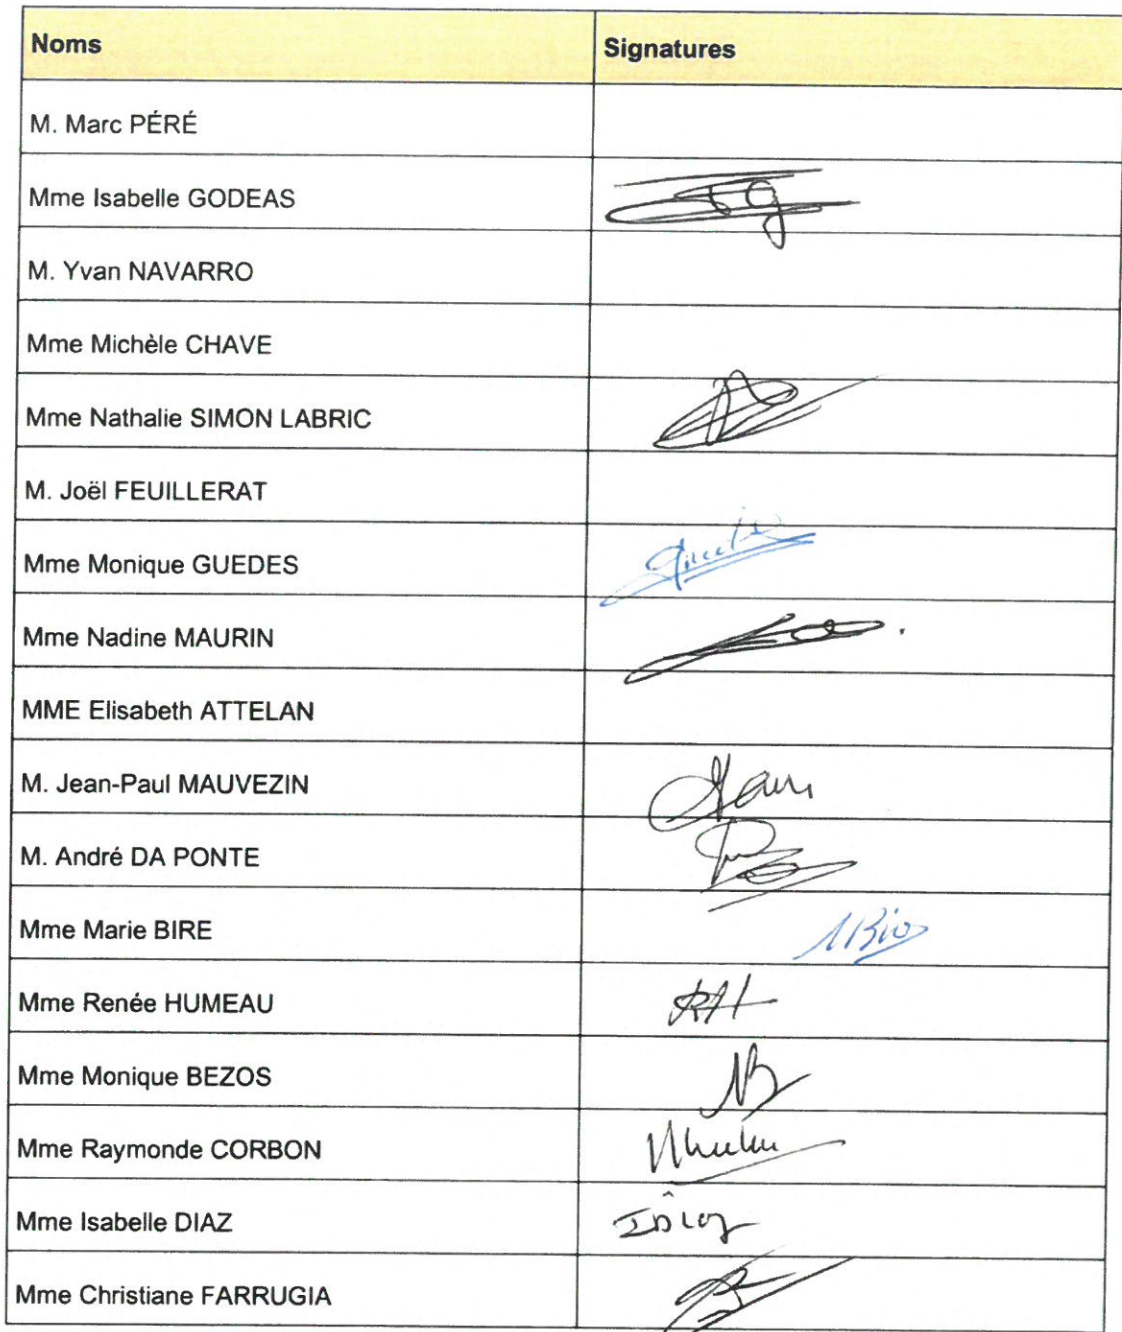 Noms Signatures
M. Marc PÉRÉ
Mme Isabelle GODEAS
M. Yvan NAVARRO
Mme Michèle CHAVE
Mme Nathalie SIMON LABRIC
M. Joël FEUILLERAT
Mme Monique GUEDES
Mme Nadine MAURIN
MME Elisabeth ATTELAN
M. Jean-Paul MAUVEZIN
M. André DA PONTE
Mme Marie BIRE
Mme Renée HUMEAU RH
Mme Monique BEZOS
Mme Raymonde CORBON
Mme Isabelle DIAZ
Mme Christiane FARRUGIA